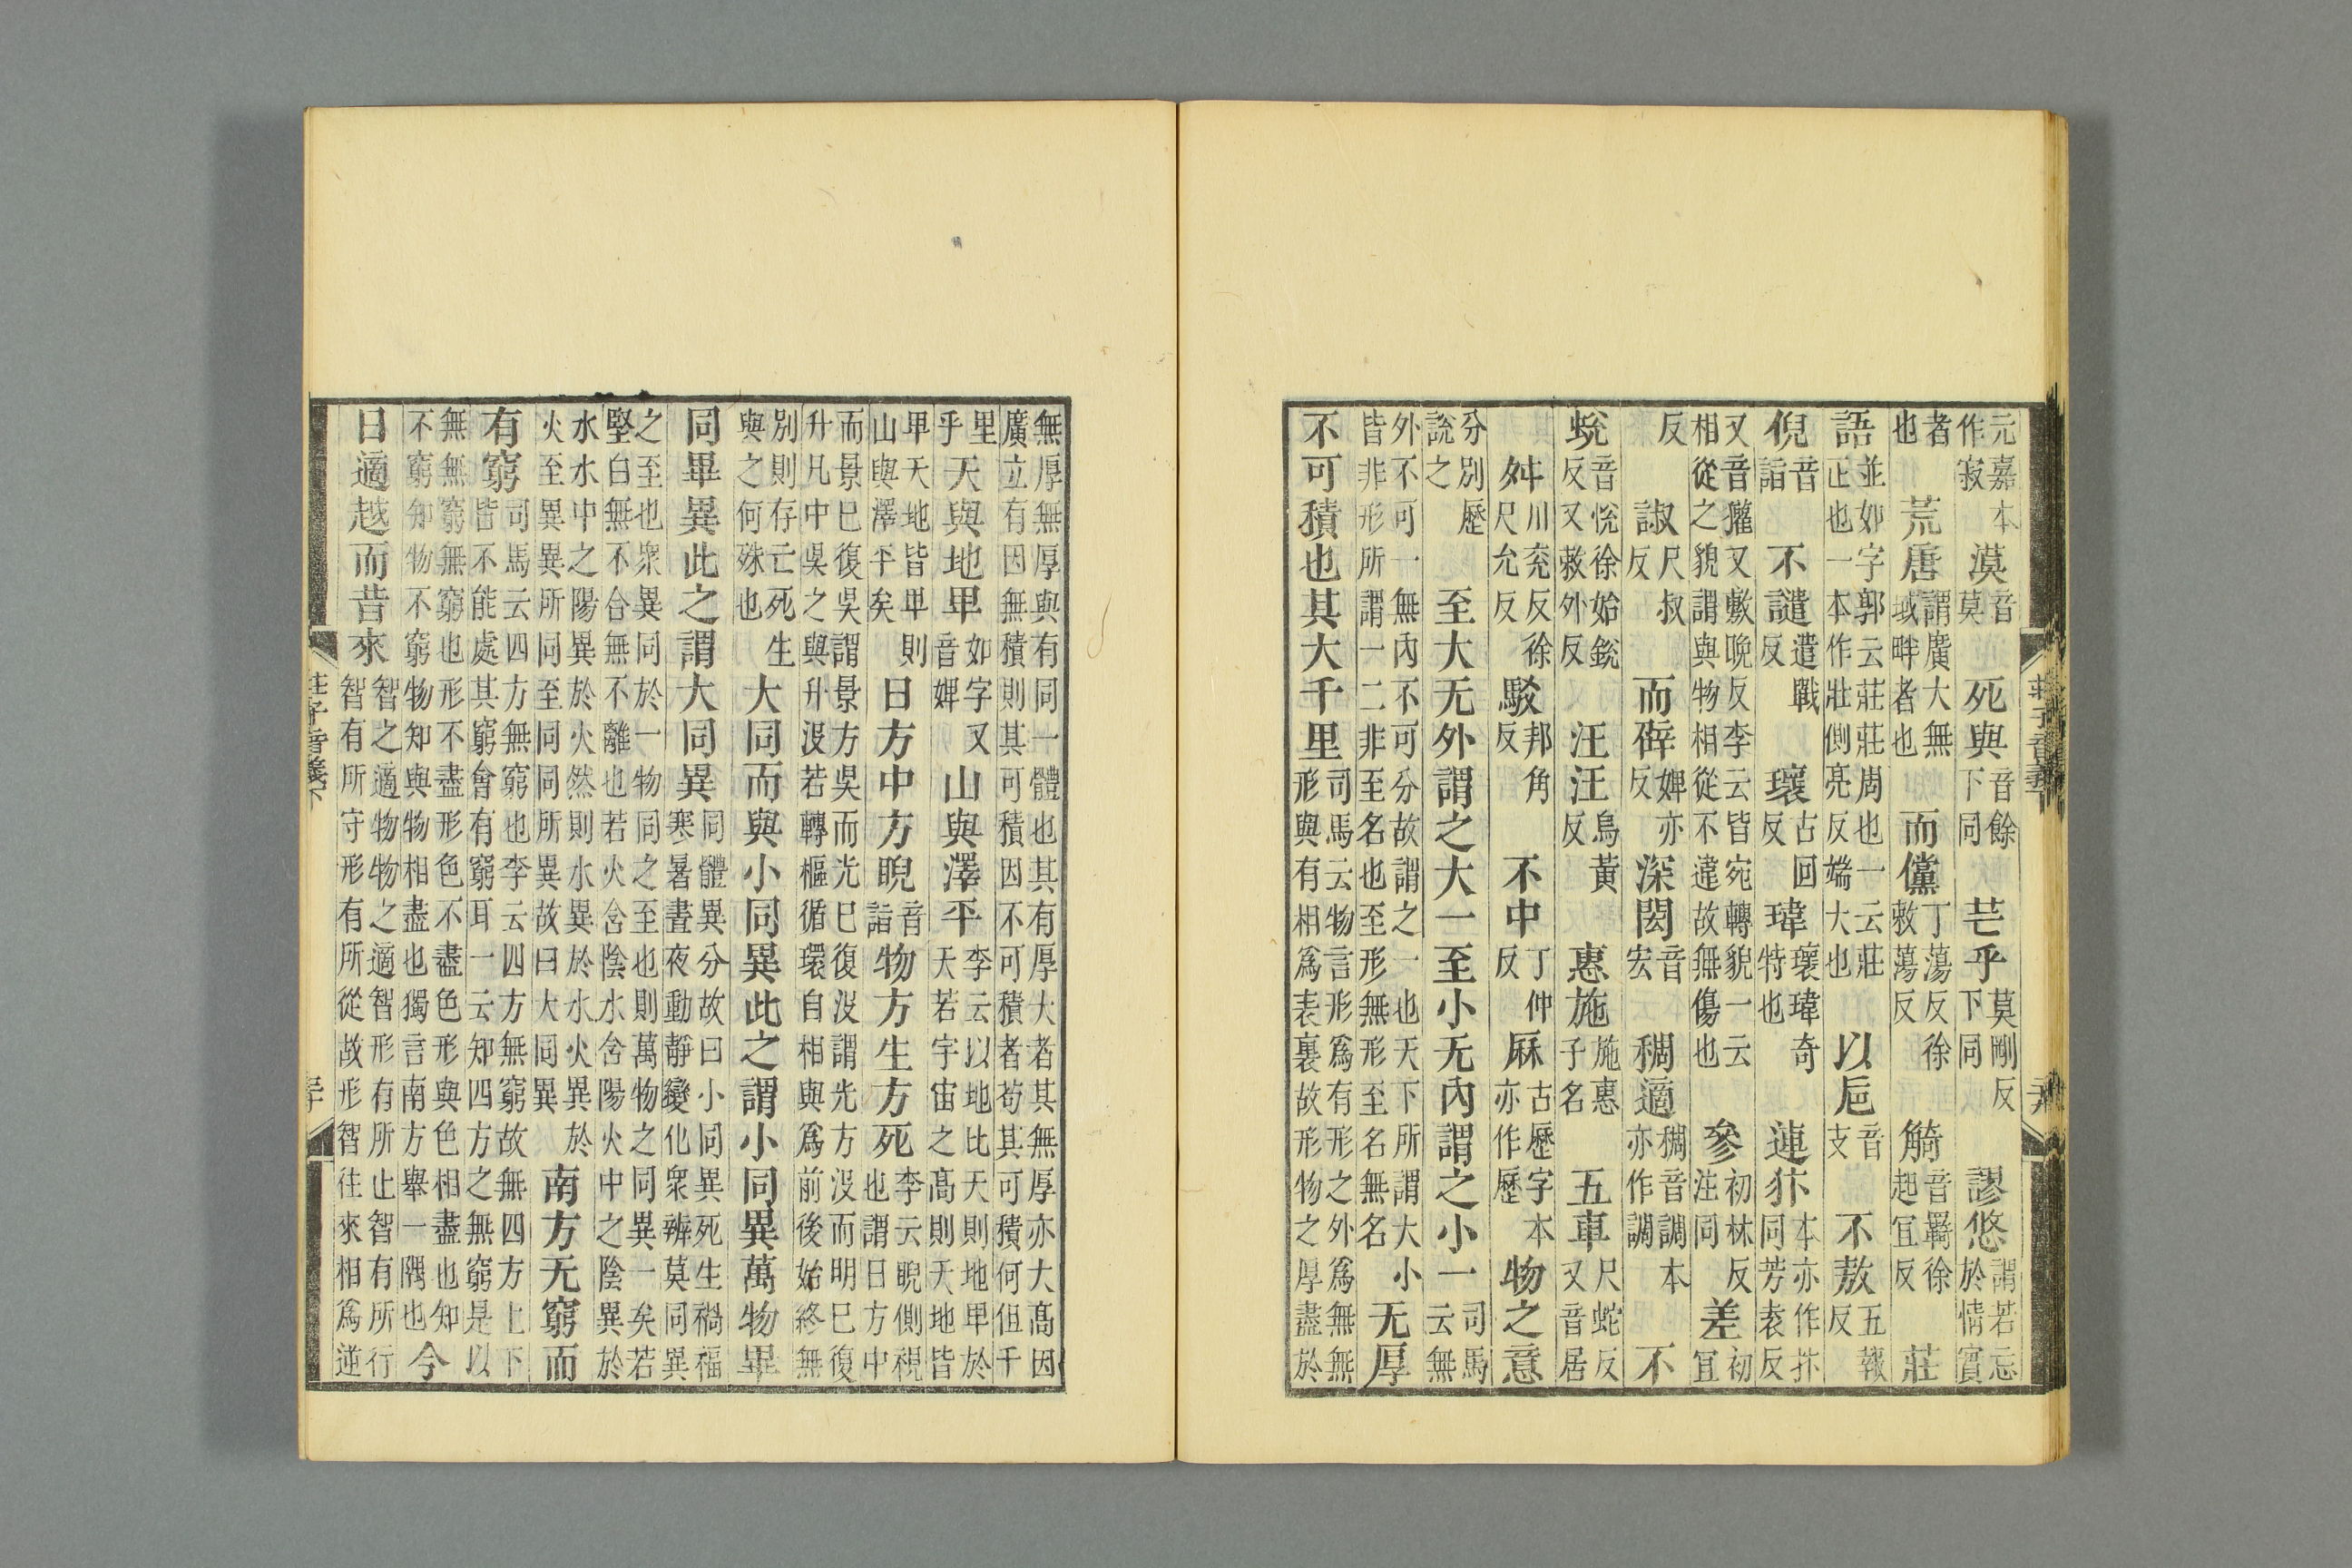 元嘉本作寂 漠音莫 死與音餘下同 芒乎莫剛反下同 謬悠謂若忘於情實
者也 荒唐謂廣大無域畔者也 而儻丁蕩反徐敕蕩反 觭音羈徐起宜反 莊
語並如字郭云莊莊周也一云莊正也一本作壯側亮反端大也 以巵音支 不敖五報反
倪音詣 不譴遣戰反 瓌古回反 瑋瓌瑋奇特也 連犿本亦作抃同芳袁反
又音獾又敷晚反李云皆宛轉貌一云相從之貌謂與物相從不違故無傷也 參初林反注同 差初宜
反 諔尺叔反 而辟婢亦反 深閎音宏 稠適稠音調本亦作調 不
蛻音悅徐始銳反又敕外反 汪汪烏黃反 惠施施惠子名 五車尺蛇反又音居
舛川兖反徐尺允反 駁邦角反 不中丁仲反 厤古歷字本亦作歷 物之意
分別歷說之 至大无外謂之大一至小无內謂之小一司馬云無
外不可一無內不可分故謂之一也天下所謂大小皆非形所謂一二非至名也至形無形至名無名 无厚
不可積也其大千里司馬云物言形爲有形之外爲無無形與有相爲表裏故形物之厚盡於
無厚無厚與有同一體也其有厚大者其無厚亦大高因廣立有因無積則其可積因不可積者苟其可積何但千
里乎 天與地卑如字又音婢 山與澤平李云以地比天則地卑於天若宇宙之高則天地皆
卑天地皆卑則山與澤平矣 日方中方睨音詣 物方生方死李云睨側視也謂日方中
而景已復昃謂景方昃而光已復没謂光方没而明已復升凡中昃之與升没若轉樞循環自相與爲前後始終無
別則存亡死生與之何殊也 大同而與小同異此之謂小同異萬物畢
同畢異此之謂大同異同體異分故曰小同異死生禍福寒暑晝夜動靜變化衆辨莫同異
之至也衆異同於一物同之至也則萬物之同異一矣若堅白無不合無不離也若火含陰水含陽火中之陰異於
水水中之陽異於火然則水異於水火異於火至異異所同至同同所異故曰大同異 南方无窮而
有窮司馬云四方無窮也李云四方無窮故無四方上下皆不能處其窮會有窮耳一云知四方之無窮是以
無無窮無窮也形不盡形色不盡色形與色相盡也知不窮知物不窮物知與物相盡也獨言南方舉一隅也 今
日適越而昔來智之適物物之適智形有所止智有所行智有所守形有所從故形智往來相爲逆
莊子音義下